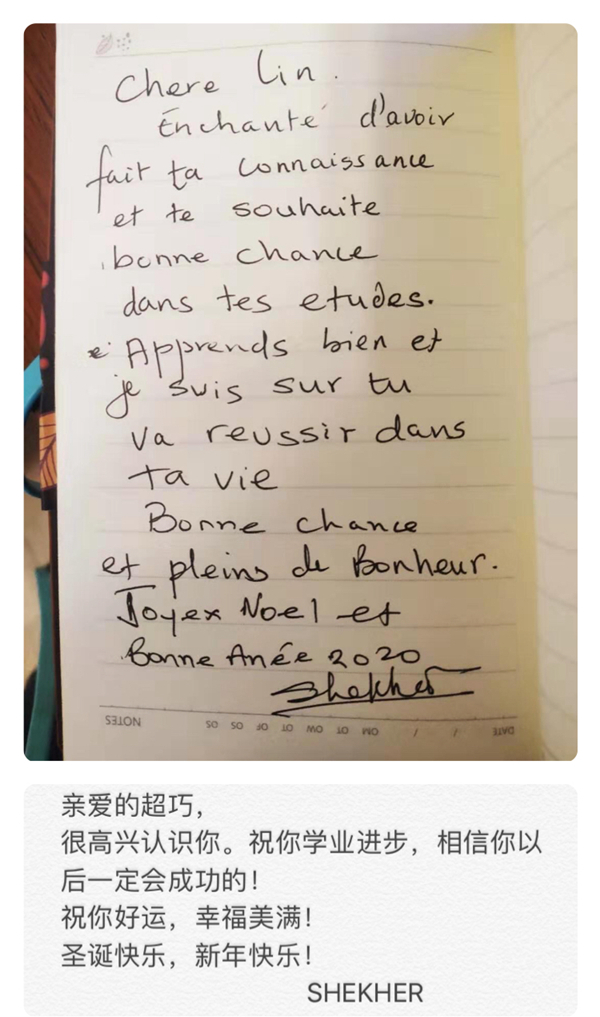 Chere Lin.
Enchanté d'avoir
fait ta connaissance
et te souhaite
bonne chance
dans tes etudes.
Apprends bien et
je suis sur tu
va reussir dans
ta vie
Bonne chance
et pleins de Bonheur.
Joyex Noel et
Bonne Anée 2020
Shekher
NOTES SO SO OF OT OW OT MO / / DATE
亲爱的超巧，
很高兴认识你。祝你学业进步，相信你以
后一定会成功的！
祝你好运，幸福美满！
圣诞快乐，新年快乐！
SHEKHER